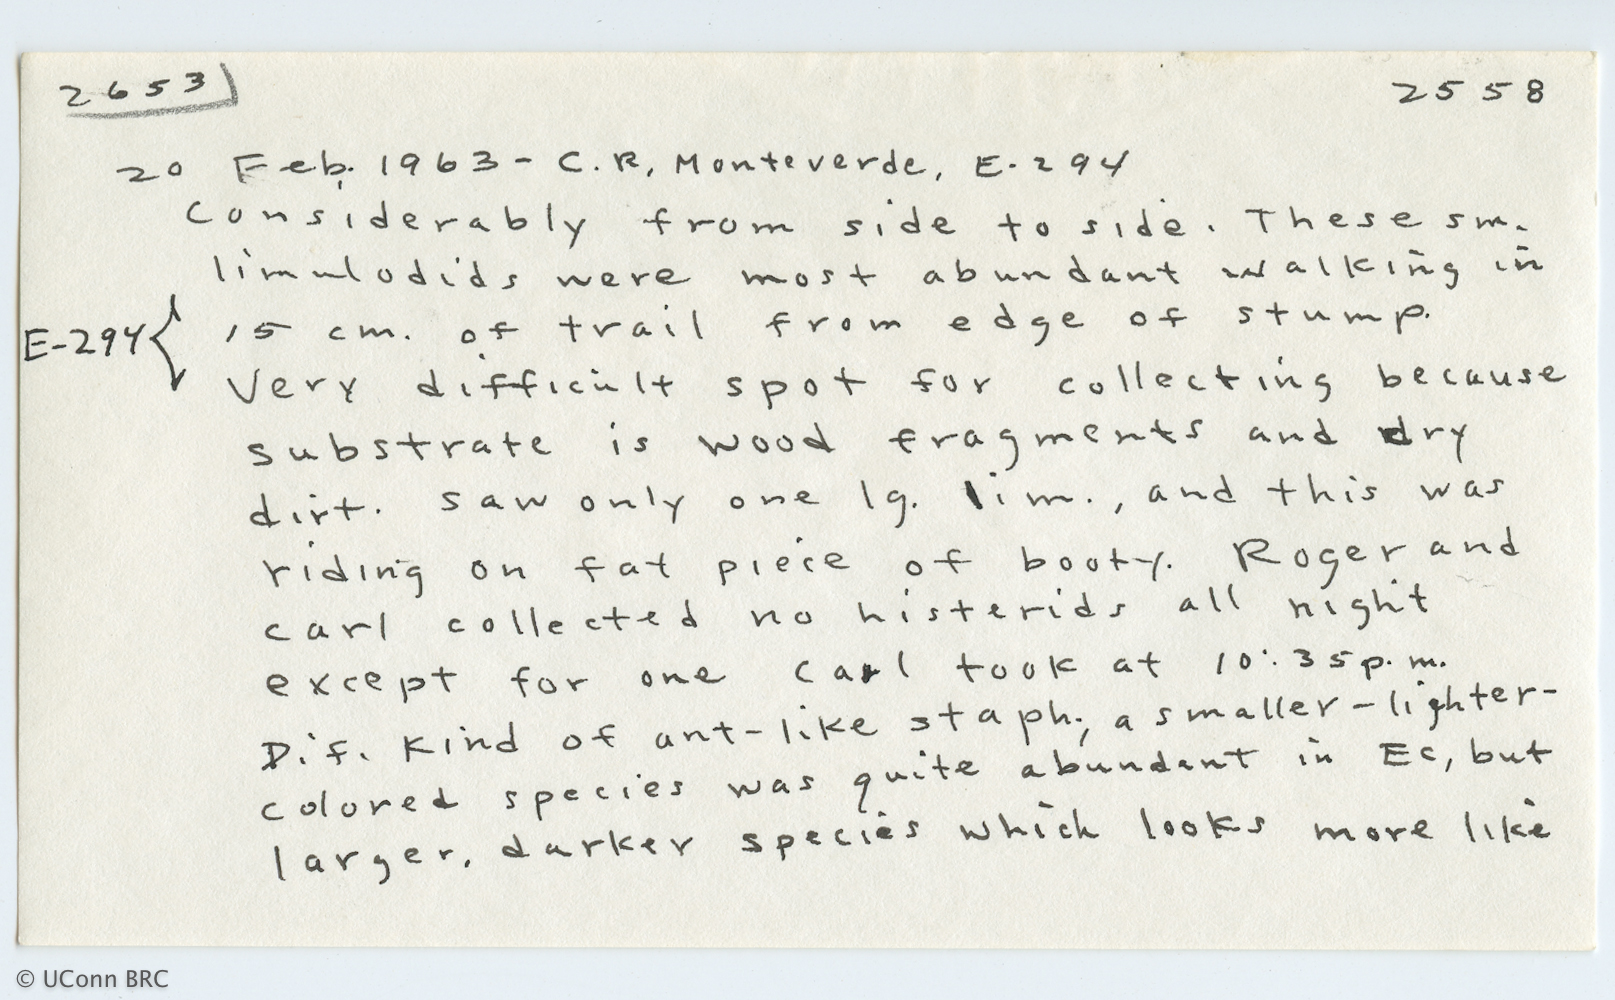 2653 2558
20 Feb. 1963 - C.R, Monteverde, E-294
considerably from side to side. These sm.
limulodids were most abundant walking in
E-294 { 15 cm. of trail from edge of stump.
Very difficult spot for collecting because
substrate is wood fragments and dry
dirt. Saw only one lg. lim., and this was
riding on fat piece of booty. Roger and
Carl collected no histerids all night
except for one Carl took at 10:35 p.m.
Dif. kind of ant-like staph.; a smaller-lighter-
colored species was quite abundant in Ec, but
larger, darker species which looks more like
© UConn BRC